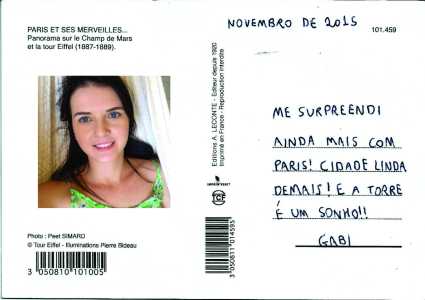 PARIS ET SES MERVEILLES...
Panorama sur le Champ de Mars
et la tour Eiffel (1887-1889).
Photo : Peet SIMARD
© Tour Eiffel - Illuminations Pierre Bideau
3 050810 101005
Editions A. LECONTE - Editeur depuis 1920
Imprimé en France - Reproduction interdite
IMPRIM'VERT
3 050811 014593
NOVEMBRO DE 2015
101.459
ME SURPREENDI
AINDA MAIS COM
PARIS! CIDADE LINDA
DEMAIS! E A TORRE
É UM SONHO!!
GABI